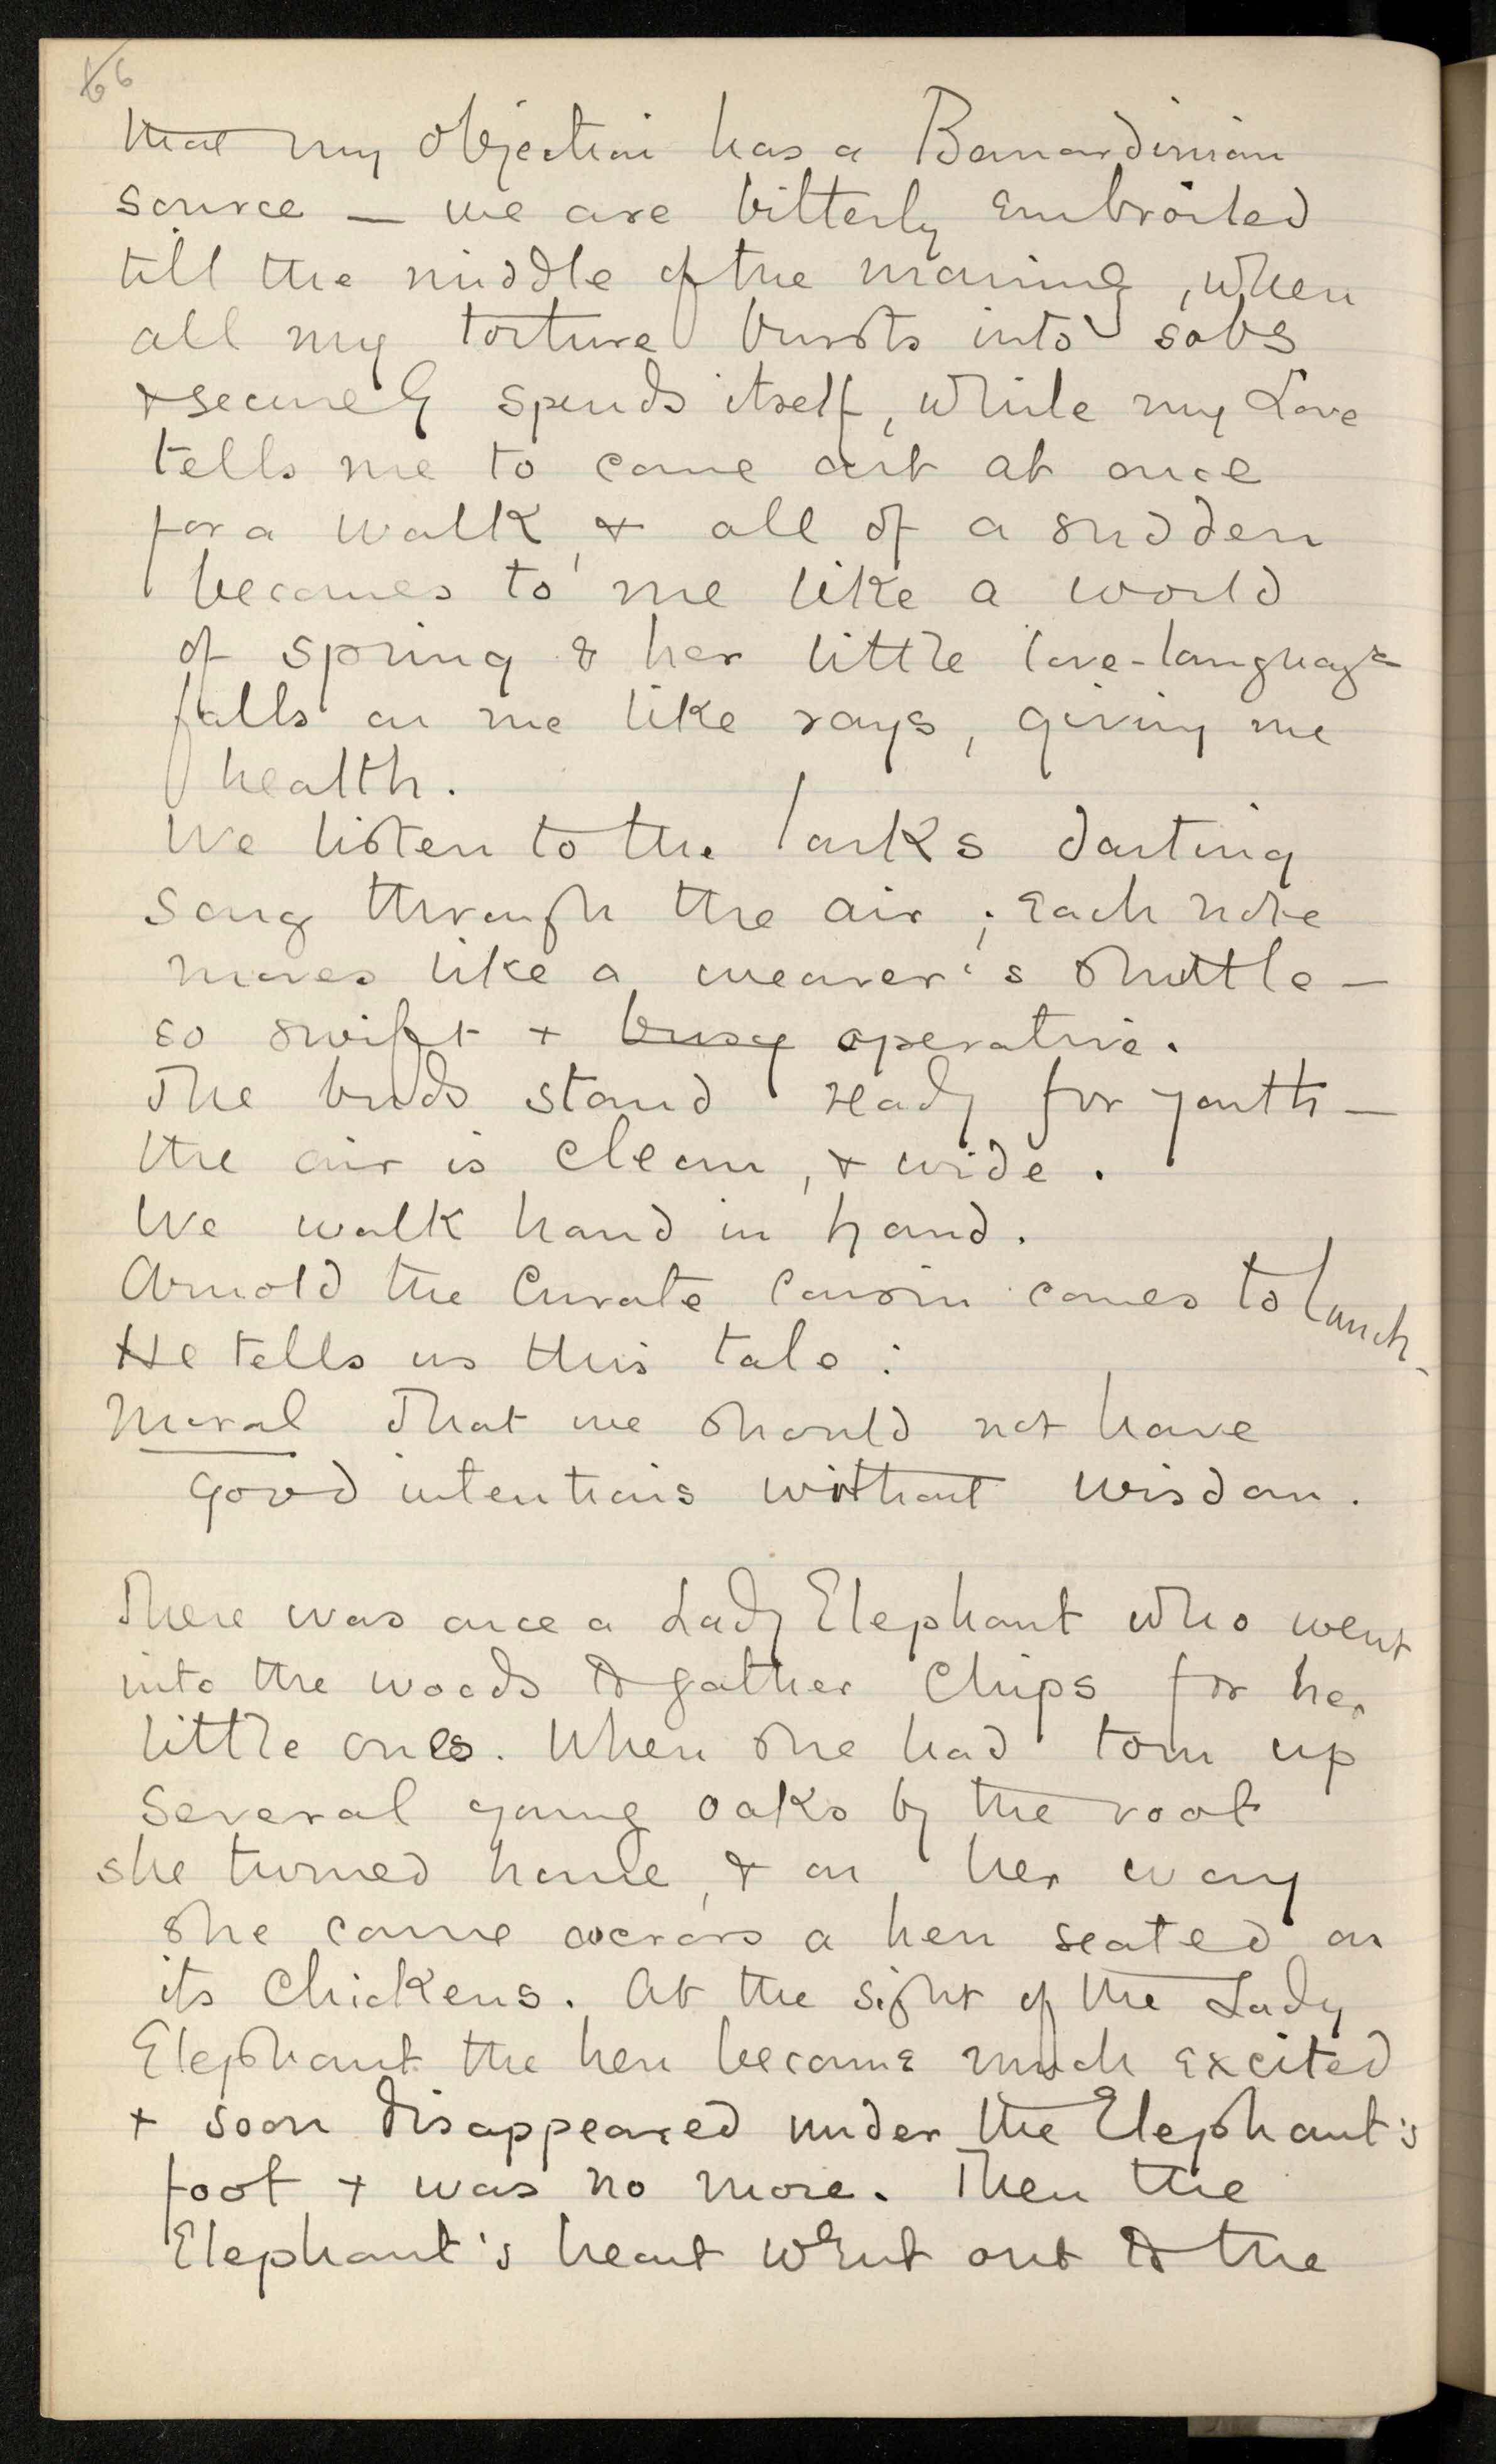 66
that my objection has a Bernardinian
source — we are bitterly embroiled
till the middle of the morning, when
all my torture bursts into sobs
& securely spends itself, while my Love
tells me to come out at once
for a walk, & all of a sudden
becomes to me like a world
of spring & her little love-language
falls on me like rays, giving me
health.
We listen to the larks darting
song through the air; Each note
moves like a weaver's shuttle —
so swift + busy operative.
The buds stand ready for youth —
the air is clean, & wide.
We walk hand in hand.
Arnold the Curate Cousin comes to lunch.
He tells us this tale:
Moral That we should not have
good intentions without wisdom.
There was once a Lady Elephant who went
into the woods to gather Chips for her
little ones. When she had torn up
Several young oaks by the root
she turned home, & on her way
she came across a hen seated on
its Chickens. At the sight of the Lady
Elephant the hen became much excited
+ soon disappeared under the Elephant's
foot + was no more. Then the
Elephant's heart went out to the